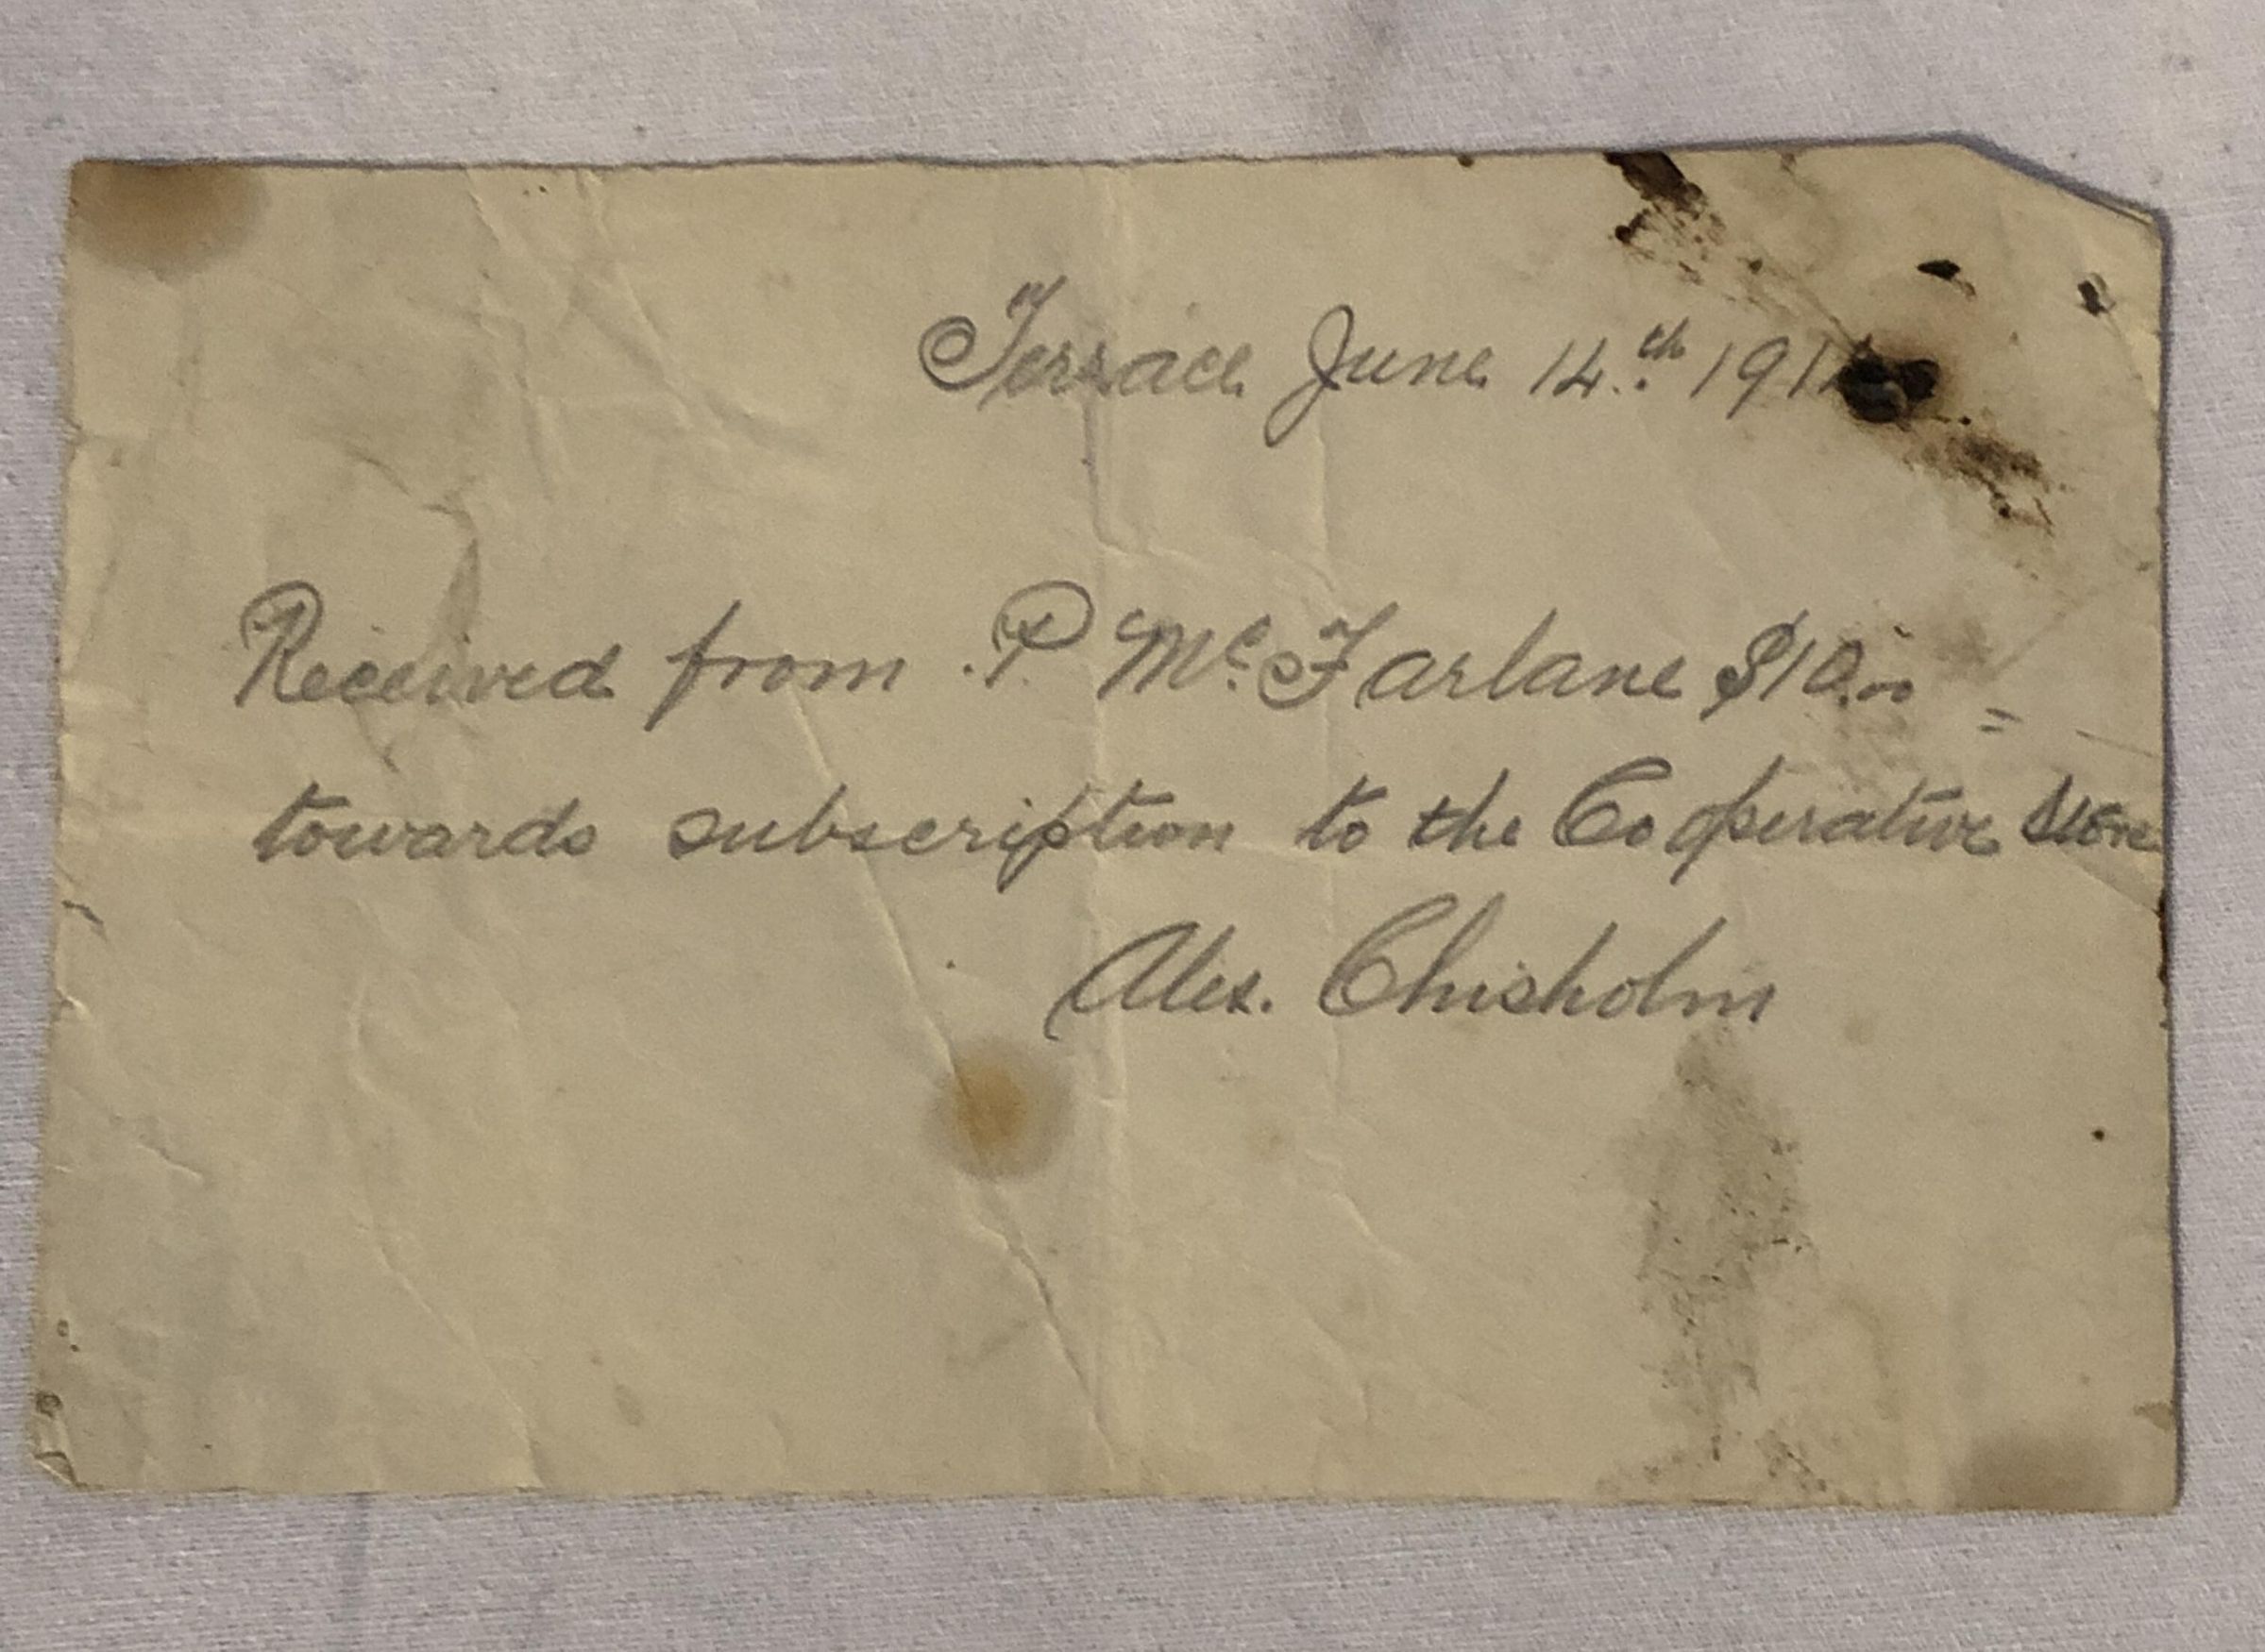 Terrace June 14th 191
Received from P McFarlane $10.00 =
towards subscription to the Cooperative Store
Alex. Chisholm